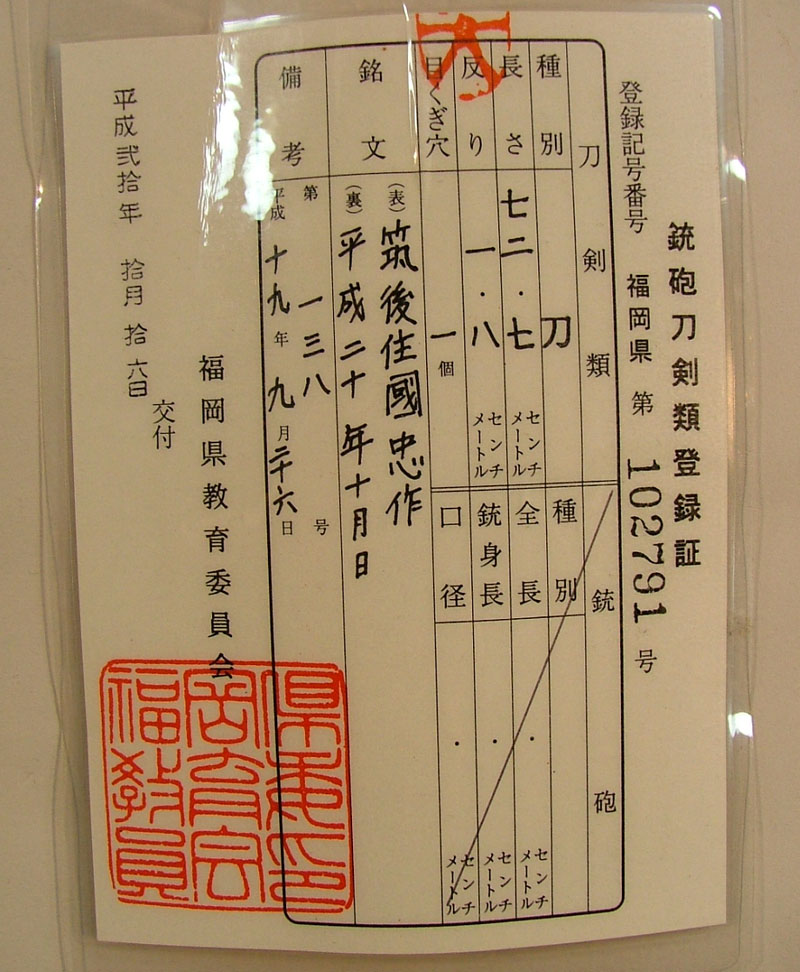 銃砲刀剣類登録証
登録記号番号 福岡県 第 102791 号
刀剣類
種別 刀
長さ 七二・七 センチメートル
反り 一・八 センチメートル
目くぎ穴 一個
銘文
(表) 筑後住國忠作
(裏) 平成二十年十月日
備考
第一三八号
平成十九年九月二十六日
銃砲
種別
全長 ・ センチメートル
銃身長 ・ センチメートル
口径 ・ センチメートル
福岡県教育委員会
交付
平成弐拾年 拾月拾六日
県委印
岡育会
福教員